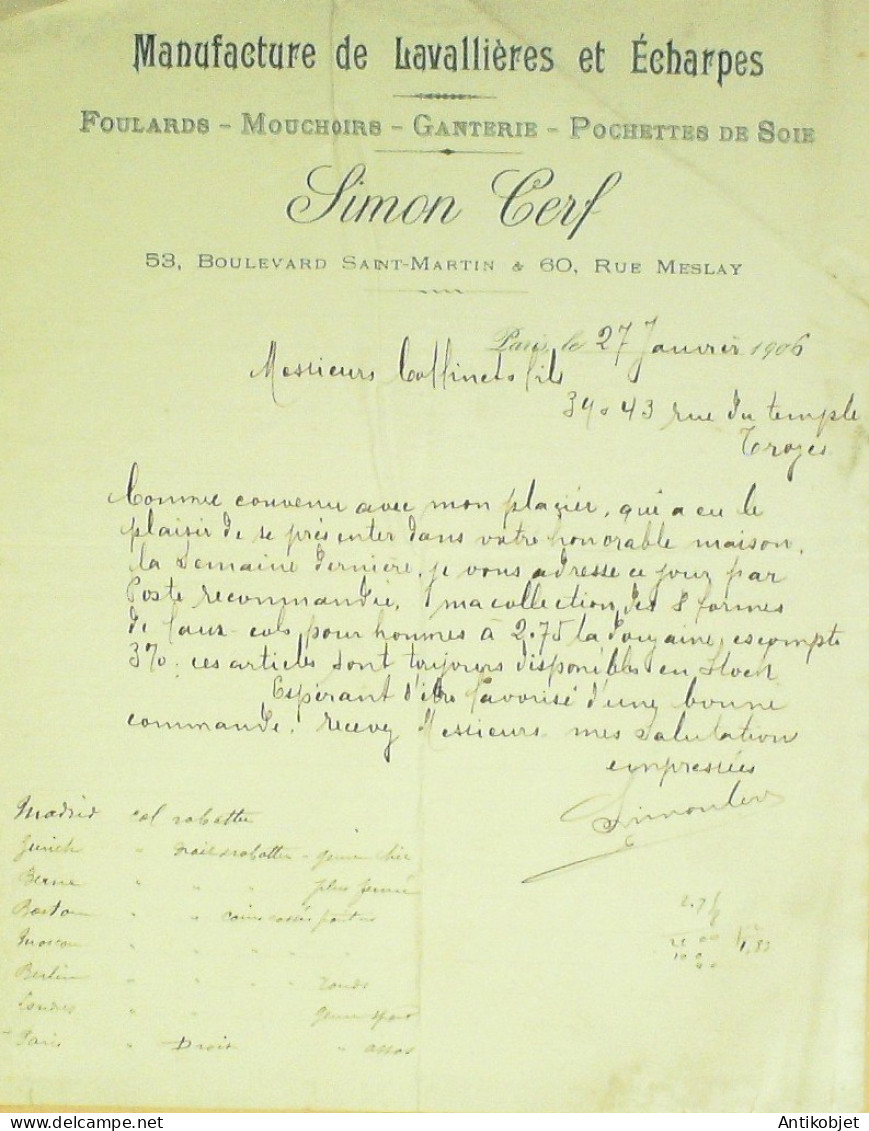 Manufacture de Lavallières et Écharpes
Foulards - Mouchoirs - Ganterie - Pochettes de Soie
Simon Cerf
53, Boulevard Saint-Martin & 60, Rue Meslay
Paris, le 27 Janvier 1906
Messieurs fils
43 rue du temple
Troyes
Comme convenu avec mon placier, qui a eu le
plaisir de se présenter dans votre honorable maison,
la semaine dernière, je vous adresse ce jour par
Poste recommandée, ma collection des 8 formes
de faux-cols pour hommes à 2.75 la douzaine, escompte
3%. ces articles sont toujours disponibles en stock
Espérant d'être favorisé d'une bonne
commande, recevez Messieurs mes salutation
empressées
Simon Cerf
Madrid col rabattu
Zurich " rabattu - genre
Berne " " " plus fermé
Boston " " coins cassés pointus
Moscou " " " " "
Berlin " " " " ronds
Londres " " genre sport
Paris " Droit "
2.75
1,82
Antikobjet
www.antikobjet.com